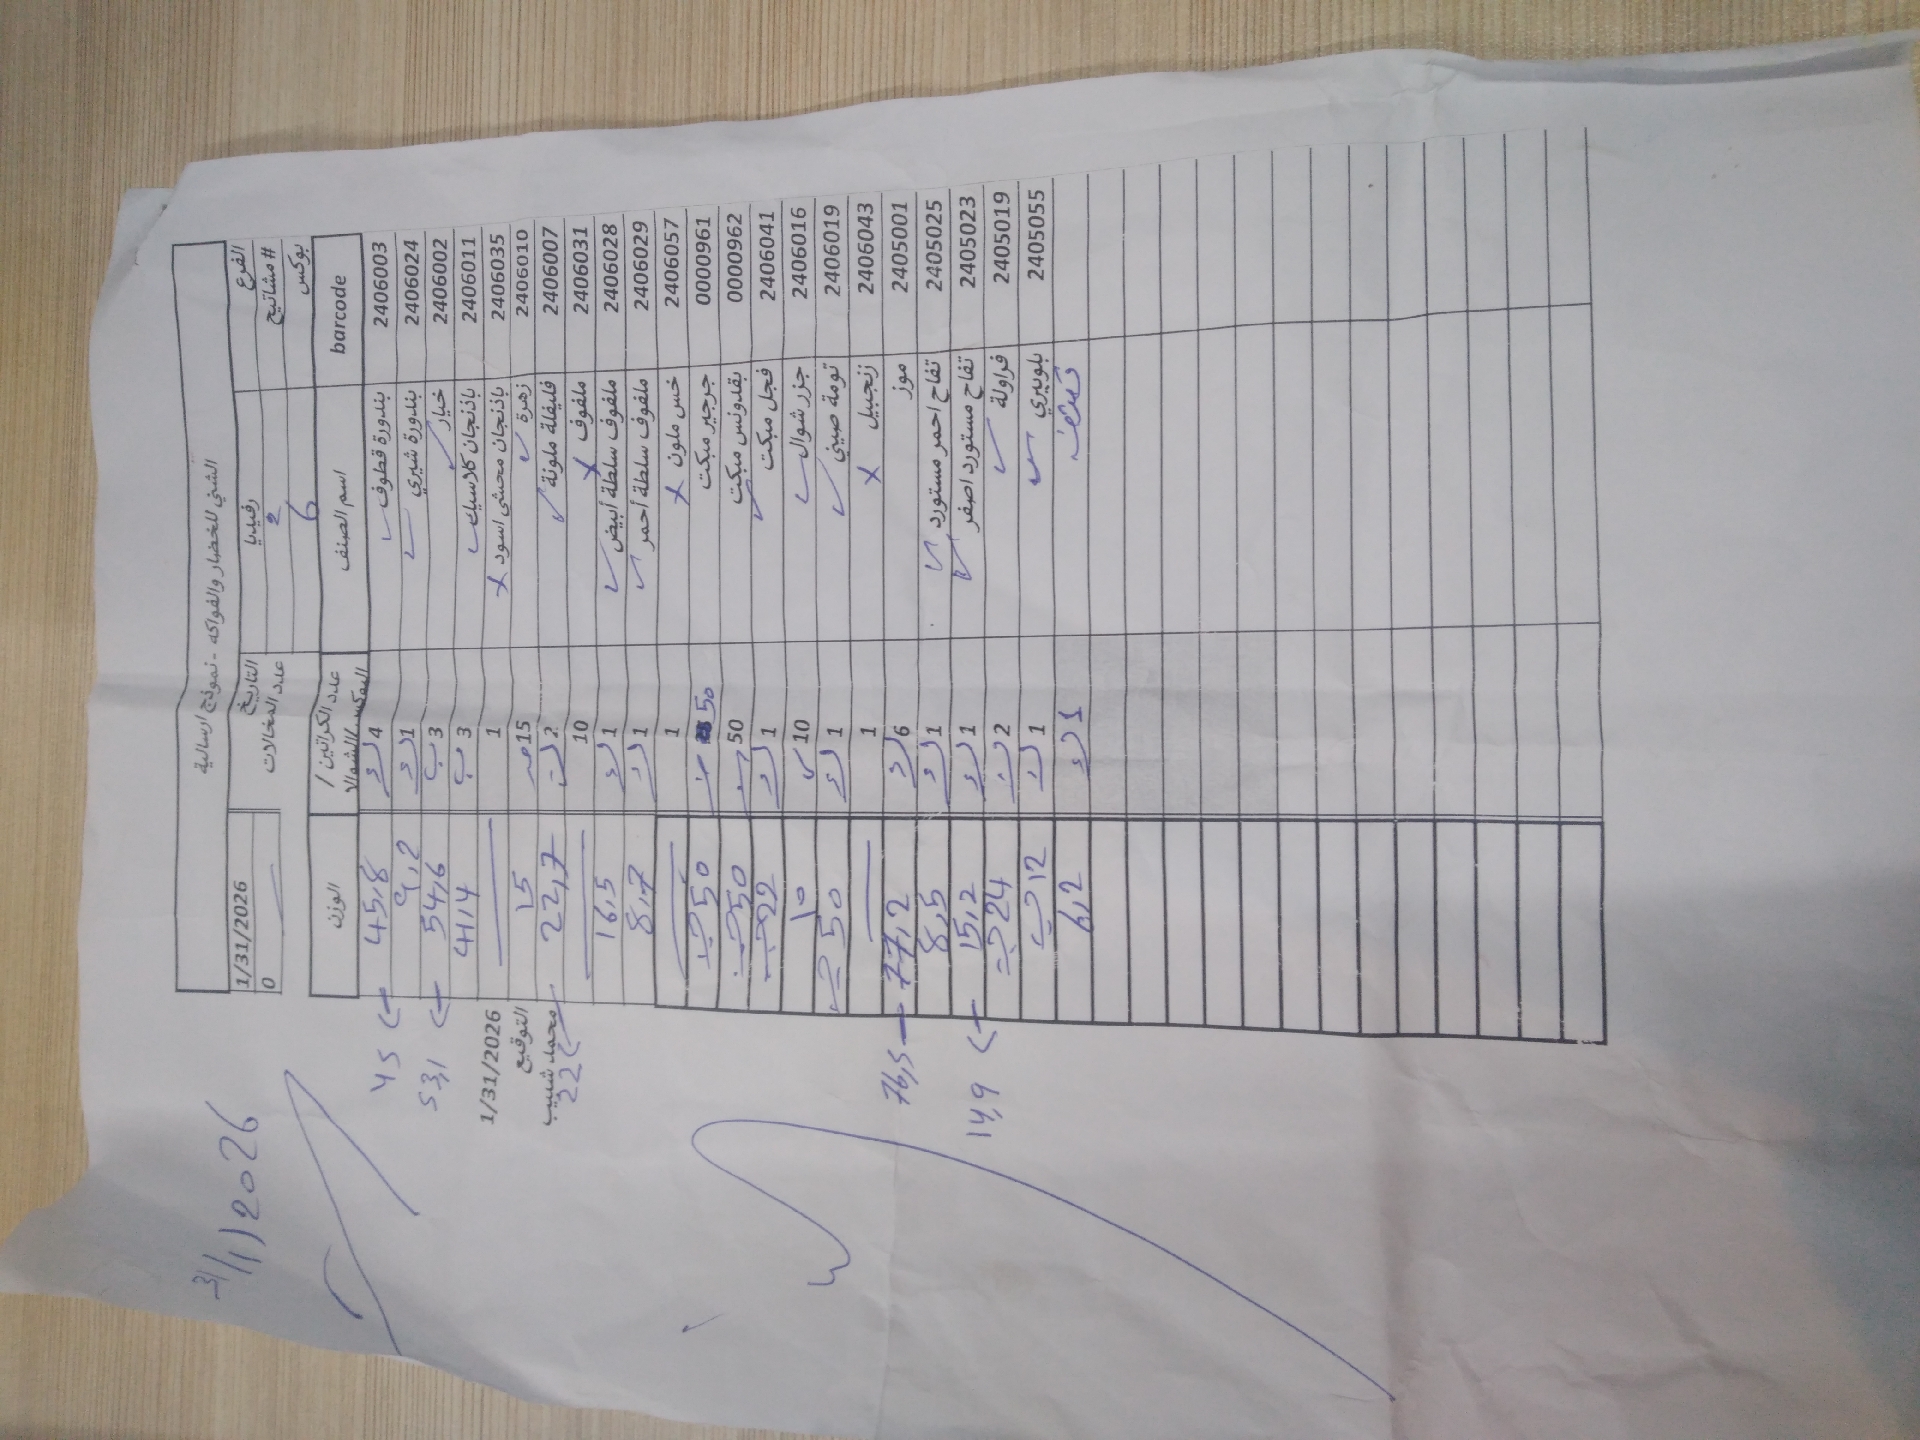 الشني للخضار والفواكه - نموذج ارسالية
الفرع رفيديا التاريخ 1/31/2026
# مشاتيح 2 عدد المدخلات 0
بوكس 6
barcode اسم الصنف عدد الكراتين / البوكس/الشوال الوزن
2406003 بندورة قطوف 4 45,8 ← 45
2406024 بندورة شيري 1 9,2
2406002 خيار 3 ب 54,6 ← 53,1
2406011 باذنجان كلاسيك 3 ب 41,4
2406035 باذنجان محشي اسود 1 1/31/2026
2406010 زهرة 15 15 التوقيع
2406007 فليفلة ملونة 2 22,7 محمد شبيب
← 22
2406031 ملفوف 10
2406028 ملفوف سلطة أبيض 1 16,5
2406029 ملفوف سلطة أحمر 1 8,7
2406057 خس ملون 1
0000961 جرجير مبكت 50 50
0000962 بقدونس مبكت 50 50
2406041 فجل مبكت 1 22
2406016 جزر شوال 10 10
2406019 تومة صيني 1 50
2406043 زنجبيل 1
2405001 موز 6 77,2 — 76,5
2405025 تفاح احمر مستورد 1 8,5
2405023 تفاح مستورد اصفر 1 15,2 ← 14,9
2405019 فراولة 2 24
2405055 بلوبيري 1 12
1 6,2
31/1/2026